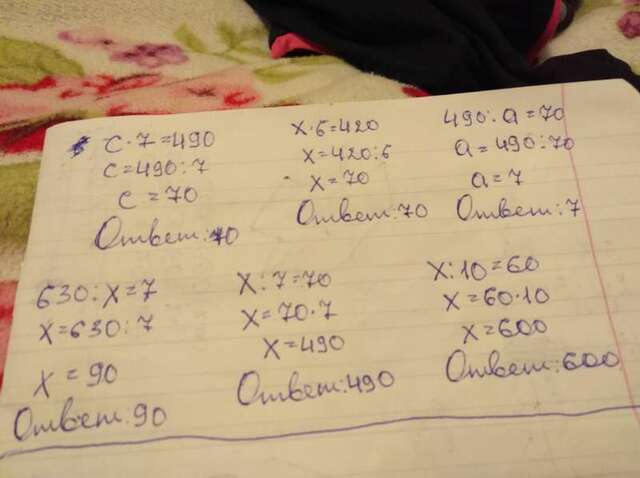 с·7=490
с=490:7
с=70
Ответ:70
х·6=420
х=420:6
х=70
Ответ:70
490:а=70
а=490:70
а=7
Ответ:7
630:х=7
х=630:7
х=90
Ответ:90
х:7=70
х=70·7
х=490
Ответ:490
х:10=60
х=60·10
х=600
Ответ:600